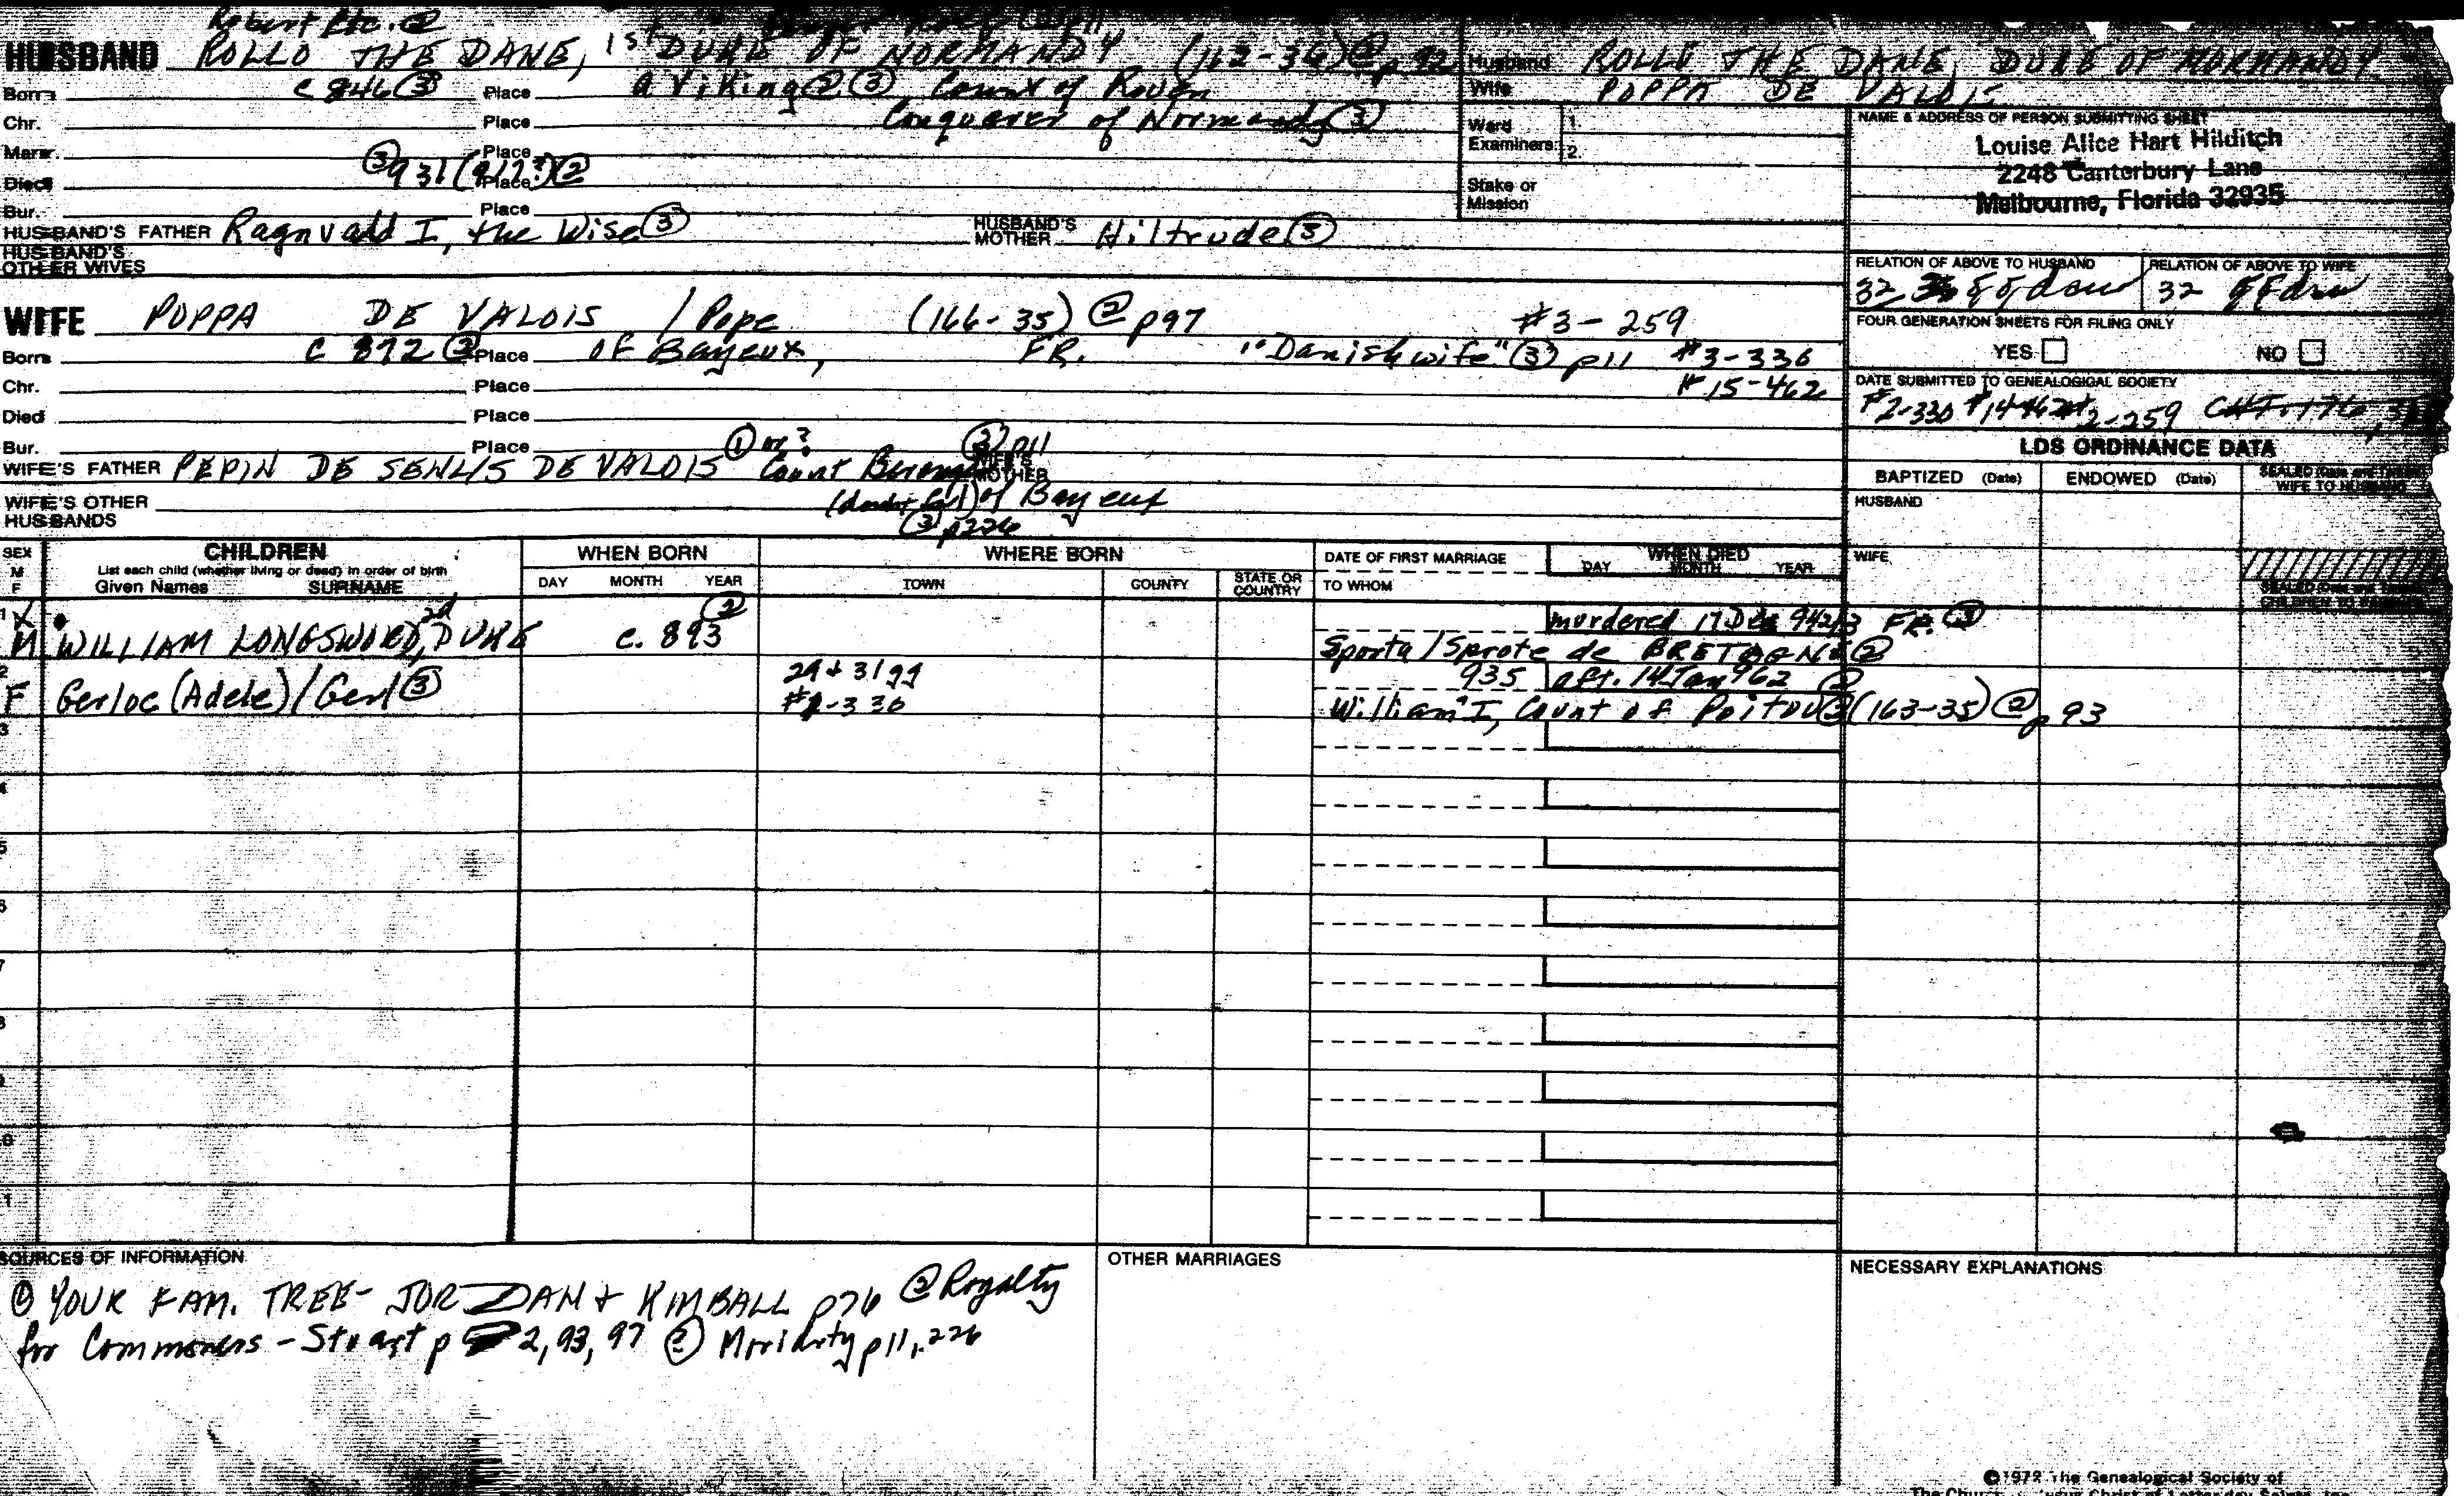 Robert Etc. ②
HUSBAND ROLLO THE DANE, 1st DUKE OF NORMANDY (162-36) ② p 92
Born c 846 ③ Place a Viking ② ③, Count of Rouen
Chr. Place Conquerer of Normandy ③
Marr. Place
Died ③ 931 (917?) ② Place
Bur. Place
HUSBAND'S FATHER Ragnvald I, the Wise ③ HUSBAND'S MOTHER Hiltrude ③
HUSBAND'S OTHER WIVES
WIFE POPPA DE VALOIS / Pope (166-35) ② p97 #3-259
Born c 872 ② Place of Bayeux, FR. "Danish wife" ③ p11 #3-336
Chr. Place # 15-462
Died Place
Bur. Place ① or? ③ p11
WIFE'S FATHER PEPIN DE SENLIS DE VALOIS Count WIFE'S MOTHER
(doubtful) of Bayeux
WIFE'S OTHER HUSBANDS ③ p226
Husband ROLLO THE DANE, DUKE OF NORMANDY
Wife POPPA DE VALOIS
Ward Examiners: 1
2
Stake or Mission
NAME & ADDRESS OF PERSON SUBMITTING SHEET
Louise Alice Hart Hilditch
2248 Canterbury Lane
Melbourne, Florida 32935
RELATION OF ABOVE TO HUSBAND RELATION OF ABOVE TO WIFE
32 ggdau 32 ggdau
FOUR GENERATION SHEETS FOR FILING ONLY
YES NO
DATE SUBMITTED TO GENEALOGICAL SOCIETY
#2-330 #14-462 #2-259
LDS ORDINANCE DATA
BAPTIZED (Date) ENDOWED (Date) SEALED (Date and Temple) WIFE TO HUSBAND
HUSBAND
WIFE
SEALED (Date and Temple) CHILDREN TO PARENTS
SEX M F CHILDREN WHEN BORN WHERE BORN DATE OF FIRST MARRIAGE WHEN DIED
List each child (whether living or dead) in order of birth
Given Names SURNAME DAY MONTH YEAR TOWN COUNTY STATE OR COUNTRY TO WHOM DAY MONTH YEAR
1 X 2d ② murdered 17 Dec 942/3 FR. ③
M WILLIAM LONGSWORD, DUKE c. 893 Sporta / Sprote de BRETAGNE ②
2 29 + 31gg 935 aft. 14 Jan 962 ②
F Gerloc (Adele) / Gerl ③ #2-336 William I, Count of Poitou ③ (163-35) ② p 93
3
4
5
6
7
8
9
10
11
SOURCES OF INFORMATION
① YOUR FAM. TREE - JORDAN + KIMBALL p76 ② Royalty
for Commoners - Stuart p 2, 93, 97 ③ Moriarty p11, 226
OTHER MARRIAGES
NECESSARY EXPLANATIONS
©1972 The Genealogical Society of